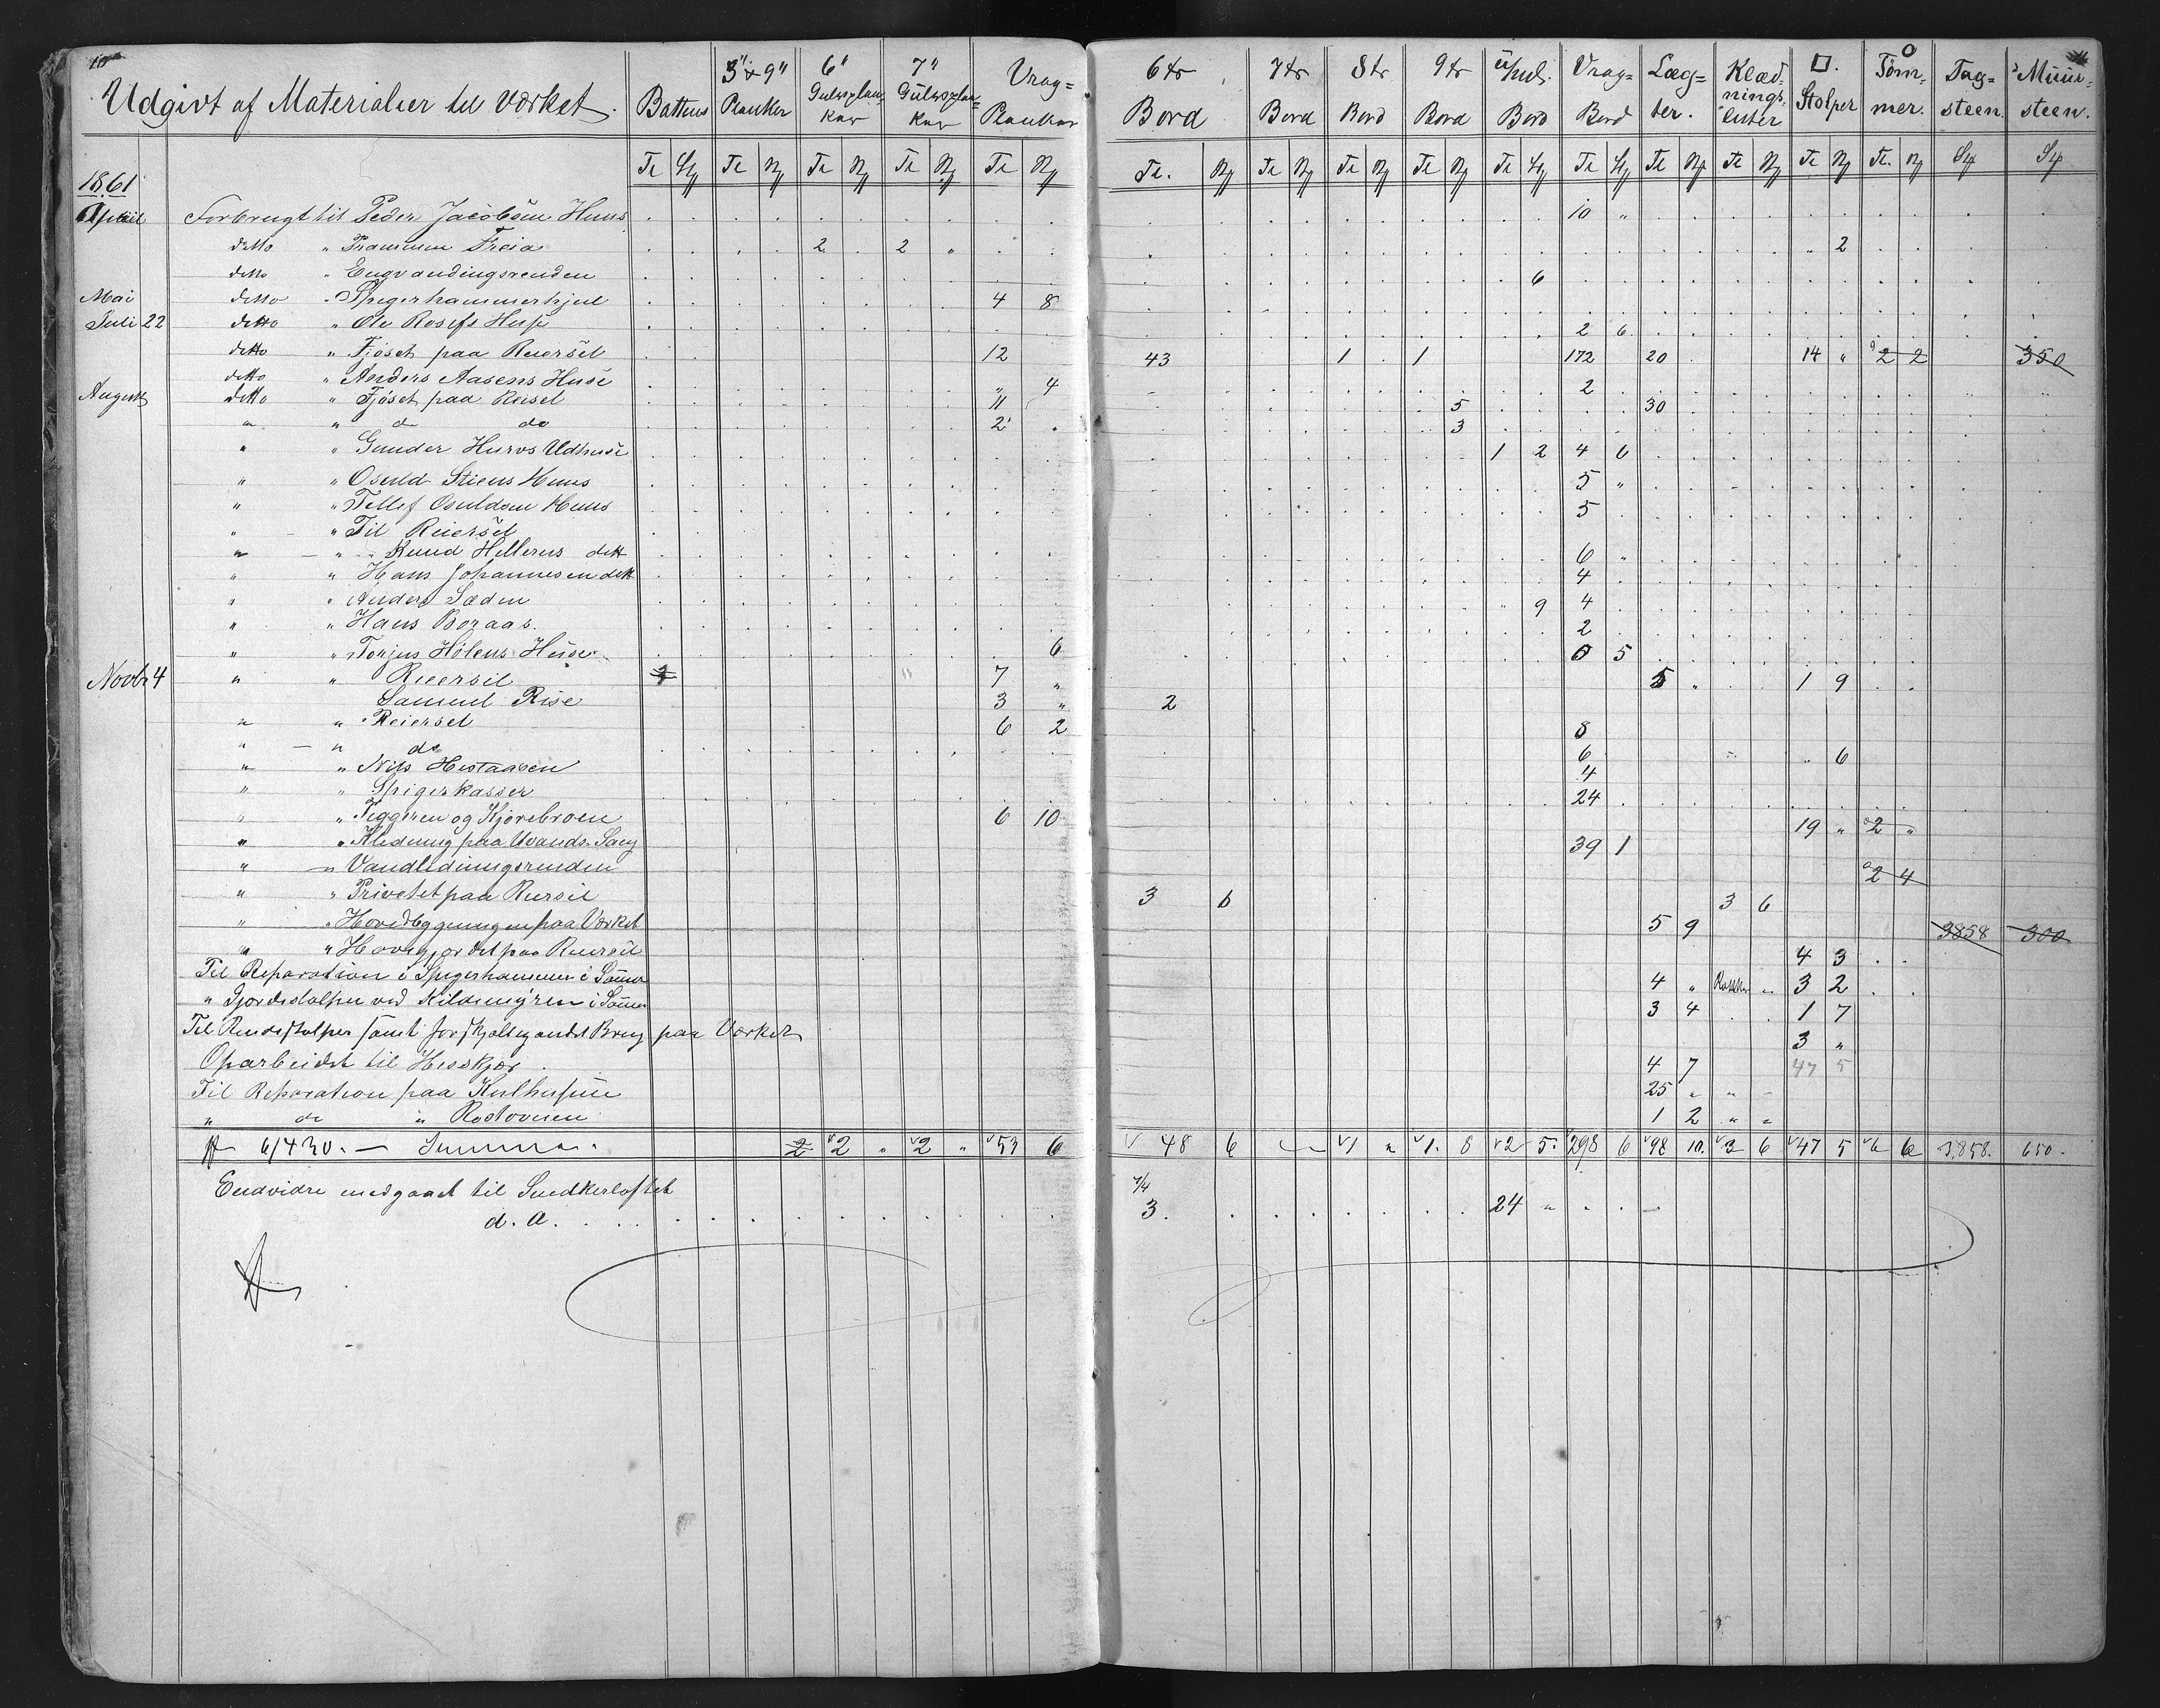 10
Udgivt af Materialier til Værket. Battens 3"x9" Planker 6" Gulvplanker 7" Gulvsplanker Vrag= Planker 6tr Bord 7tr Bord 8tr Bord 9tr Bord Bord Vrag= Bord Læg= ter. Klæd= nings lister □. Stolper O Tøm= mer. Tag= steen. Muur= steen.
1861
April Forbrugt til Peder Jacobsen Huus 10 "
ditto " Prammen Freia 2 . 2 " " 2
ditto " Engvandingsrenden 6
Mai ditto " Spigerhammerhjul 4 8
Juli 22 ditto " Ole Rosefs Huse 2 6
ditto " Fjøset paa Reiersel 12 43 1 . 1 172 20 14 " 2 2 350
ditto " Anders Aasens Huse " 4 2
August ditto " Fjøset paa Reisel 11 5 30
" " d do 2 3
" " Gunder Hurvs Udhuse 1 2 4 6
" " Osuld Stiens Huus 5 "
" " Tellef Osuldsen Huus 5
" " Til Reiersel
" " Knud Hellerns ditt 6 "
" " Hans Johannesen ditt 4
" " Anders Sæden " 9 4
" " Hans Boraas. 2
" " Torjus Hølens Huse 6 0 5
Novbr 4 " " Reiersel 1 7 " 5 " 1 9
Samuel Rise 3 " 2
" " Reiersel 6 2 8
" " do 6 " 6
" " Nils Hestaasen 4
" " Spigerkasser 24
" " Teggeren og Kjørebroen 6 10 19 " 2 "
" " Klædning paa Uvands Saug 39 1
" " Vandledningsrenden 2 4
" " Privetet paa Reiersel 3 6 3 6
" " Hovedbygningen paa Værket 5 9 3858 300
" " Havegjordet paa Reiersel 4 3
Til Reparation i Spigerhammer i Sommer 4 " " 3 2
" Gjordestolper ved Kildeengren i Sommer 3 4 1 7
Til Rendestolper samt forskjelligandet Brug paa Værket 3 "
Oparbeidet til Hesskjør 4 7 47 5
Til Reparation paa Kulhusene 25 " " "
" do " Rostovnen 1 2 " "
6/430. — Summa. 2 2 " 2 " 53 6 48 6 1 " 1. 8 2 5. 298 6 98 10. 3 6 47 5 6 6 3,858. 650.
Endvidre medgaaet til Snedkerloftet 7/4
d. A. 3. 24 "